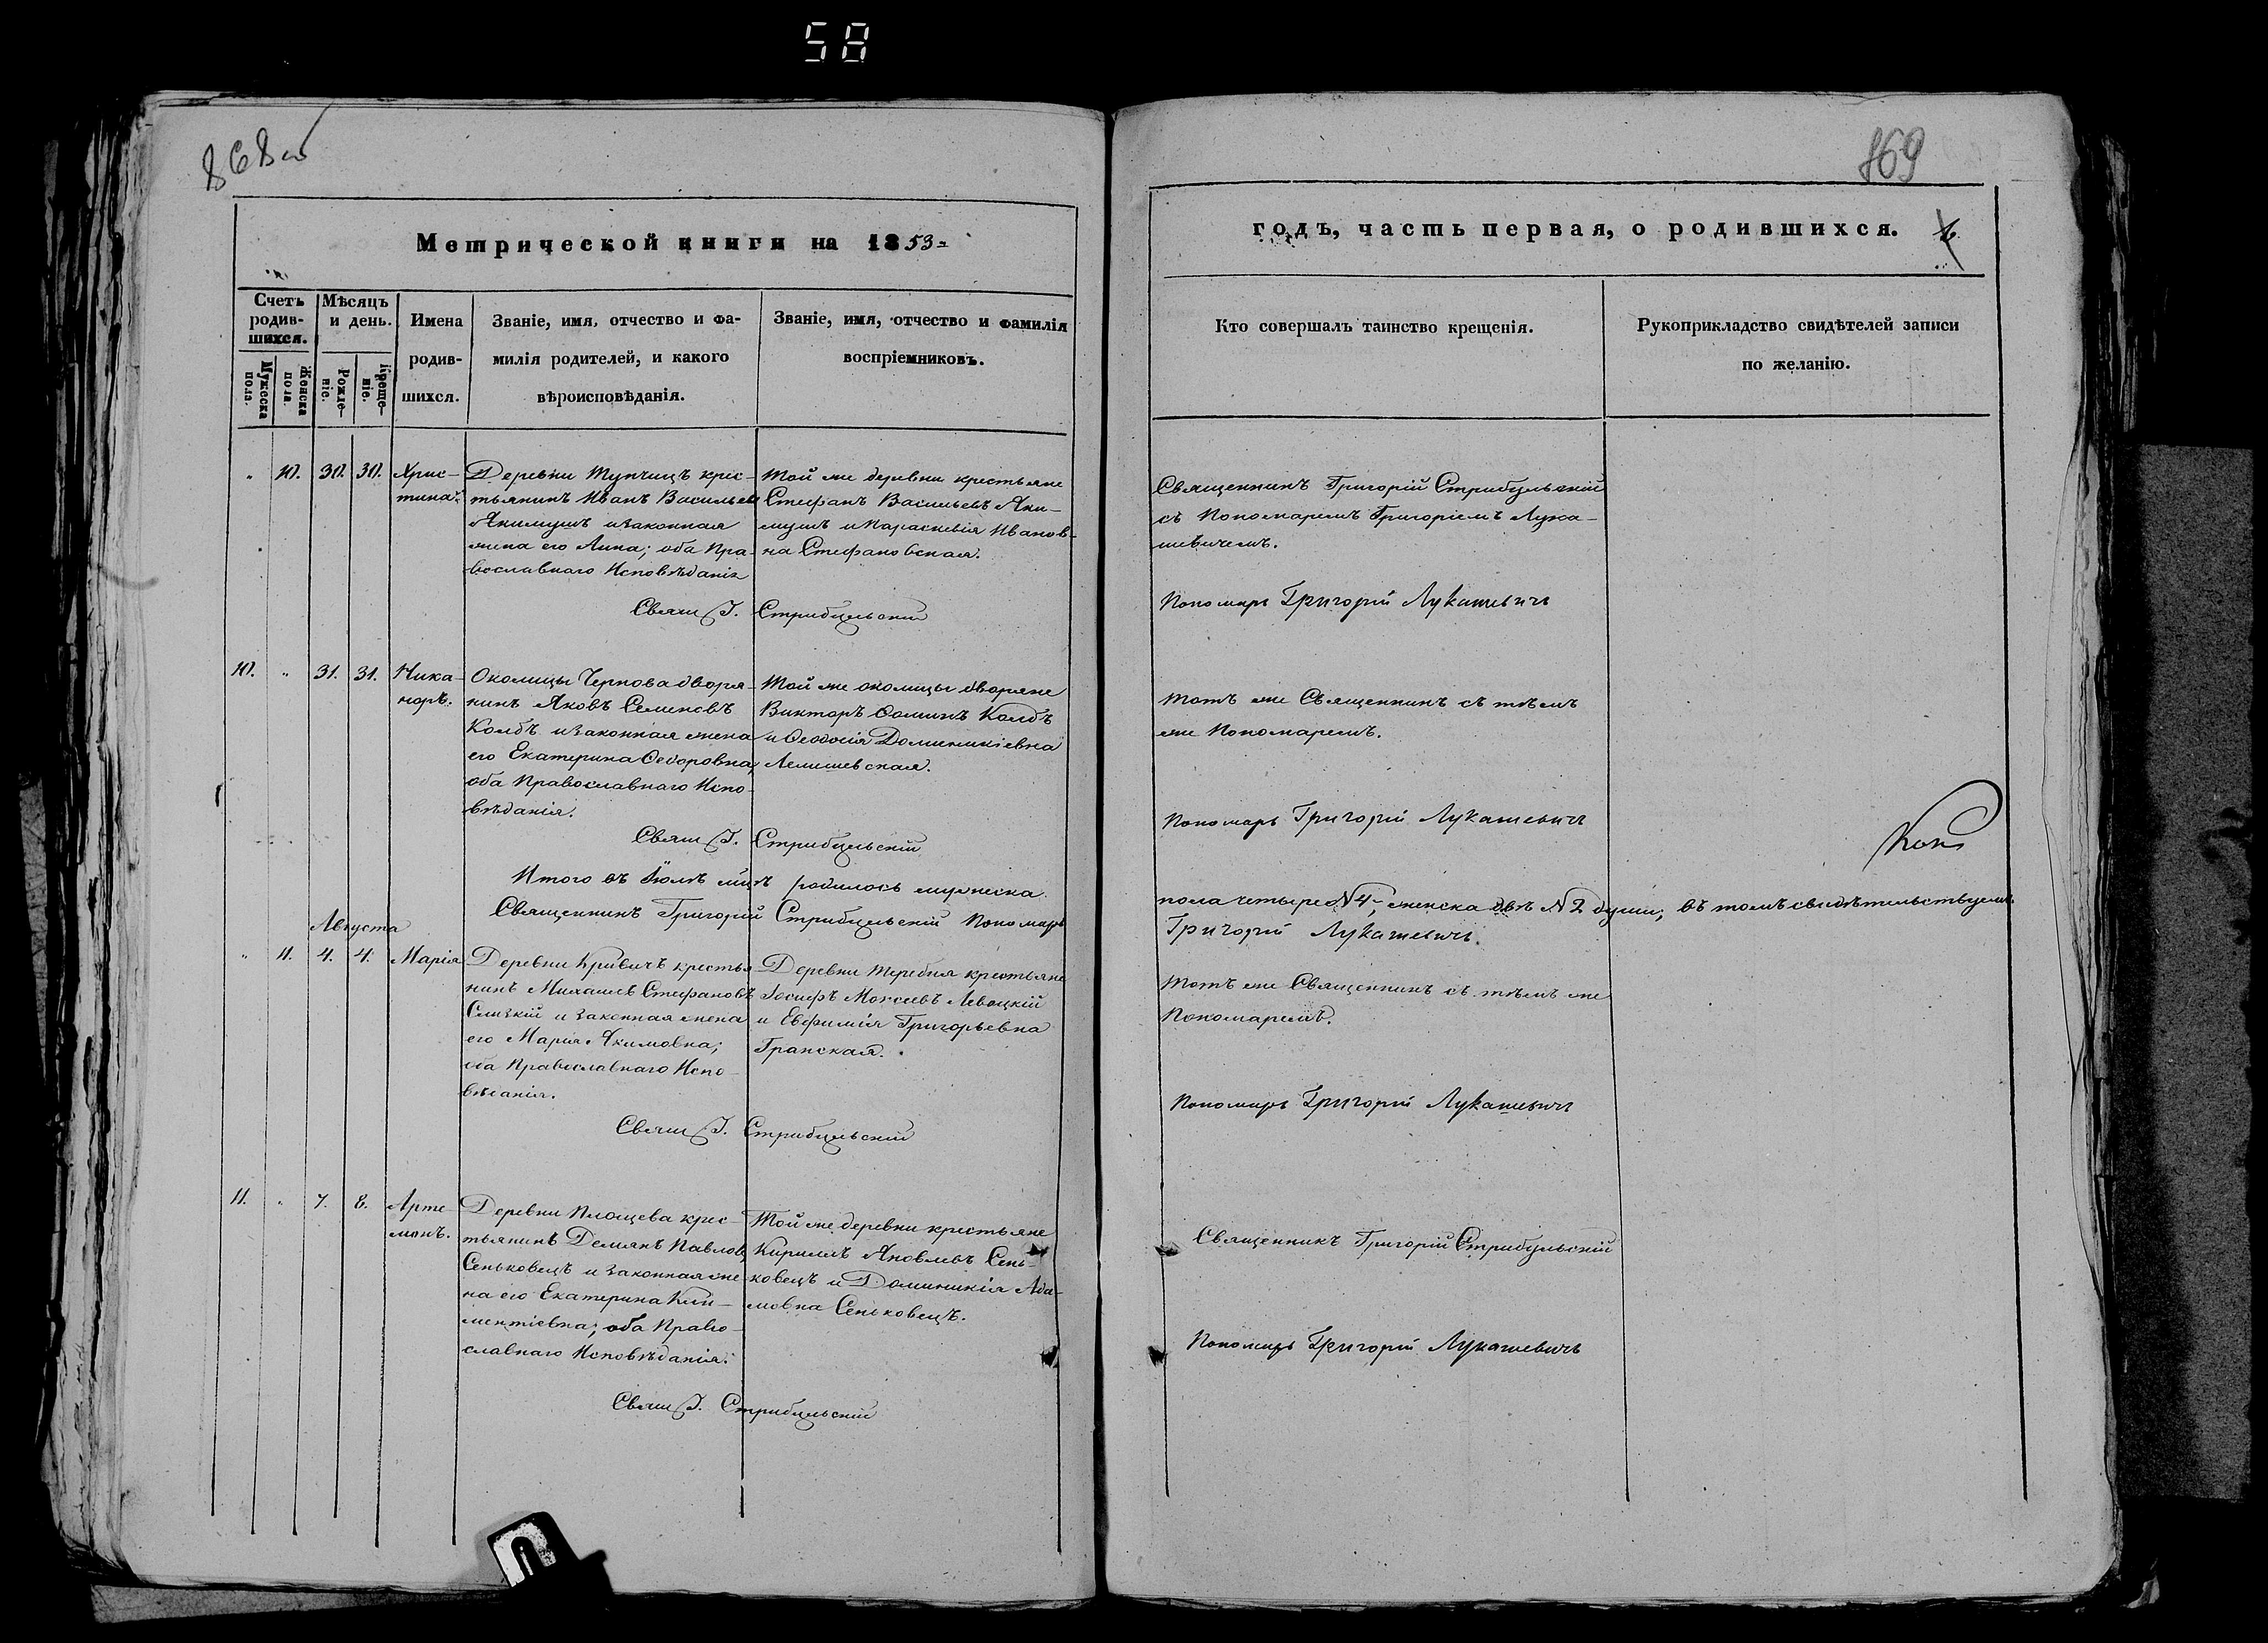 58
868 об
869
Метрической книги на 1853
годъ, часть первая, о родившихся.
Счетъ родившихся.
Мѣсяцъ и день.
Имена родившихся.
Званіе, имя, отчество и фамилія родителей, и какого вѣроисповѣданія.
Званіе, имя, отчество и фамилія воспріемниковъ.
Кто совершалъ таинство крещенія.
Рукоприкладство свидѣтелей записи по желанію.
Мужеска пола.
Женска пола.
Рожденіе.
Крещеніе.
" 10. 30. 30. Христина.
Деревни Тупчицъ крес-
тьянинъ Иванъ Васильевъ
Якимушъ и законная
жена его Анна; оба Пра-
вославнаго Исповѣданія
Той же деревни крестьяне
Стефанъ Васильевъ Яки-
мушъ и Параскевія Иванов-
на Стефановская.
Священникъ Григорій Стрибульскій
съ Пономаремъ Григоріемъ Лука-
шевичемъ.
Свящ Г. Стрибульскій
Пономарь Григорій Лукашевичъ
10. " 31. 31. Никаноръ.
Околицы Чернова дворя-
нинъ Яковъ Семеновъ
Колбъ и законная жена
его Екатерина Ѳедоровна,
оба Православнаго Испо-
вѣданія.
Той же околицы дворяне
Викторъ Ѳоминъ Колбъ
и Ѳеодосія Доминикіевна
Лемишевская.
Тотъ же Священникъ съ тѣмъ
же Пономаремъ.
Свящ Г. Стрибульскій
Пономарь Григорій Лукашевичъ
Итого въ Іюлѣ мцѣ родилось мужеска
пола четыре N 4, женска двѣ N 2 души; въ томъ свидѣтельствуемъ
Священникъ Григорій Стрибульскій Пономарь
Григорій Лукашевичъ.
Августа
" 11. 4. 4. Марія
Деревни Кривичъ крестья-
нинъ Михаилъ Стефановъ
Слизкій и законная жена
его Марія Якимовна;
оба Православнаго Испо-
вѣданія.
Деревни Теребня крестьяне
Іосифъ Моисеевъ Левоцкій
и Евфимія Григорьевна
Гранская.
Тотъ же Священникъ съ тѣмъ же
Пономаремъ.
Свящ Г. Стрибульскій
Пономарь Григорій Лукашевичъ
11. " 7. 8. Артемонъ.
Деревни Площева крес-
тьянинъ Демянъ Павловъ
Сеньковецъ и законная же-
на его Екатерина Кли-
ментіевна; оба Право-
славнаго Исповѣданія.
Той же деревни крестьяне
Кириллъ Яковлевъ Сень-
ковецъ и Доминикія Ада-
мовна Сеньковецъ.
Священникъ Григорій Стрибульскій
Свящ Г. Стрибульскій
Пономарь Григорій Лукашевичъ